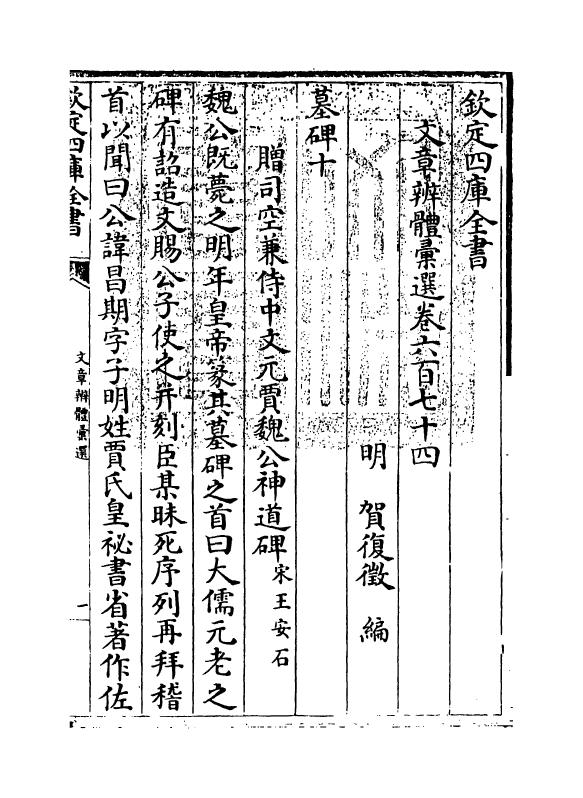 欽定四庫全書
文章辨體彙選卷六百七十四
明 賀復徵 編
墓碑十
贈司空兼侍中文元賈魏公神道碑宋王安石
魏公既薨之明年皇帝篆其墓碑之首曰大儒元老之
碑有詔造文賜公子使之并刻臣某昧死序列再拜稽
首以聞曰公諱昌期字子明姓賈氏皇祕書省著作佐
欽定四庫全書
文章辨體彙選
一